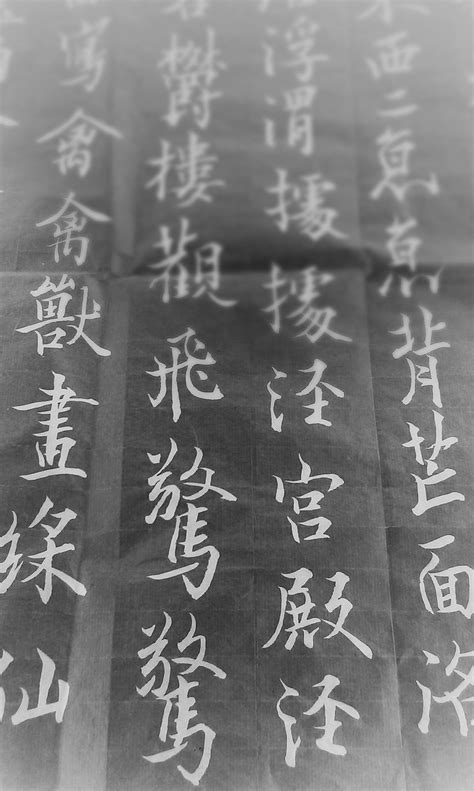 西二京京背芒面洛
浮渭據據涇宮殿涇
鬱樓觀飛驚驚
寫禽禽獸畫綵仙